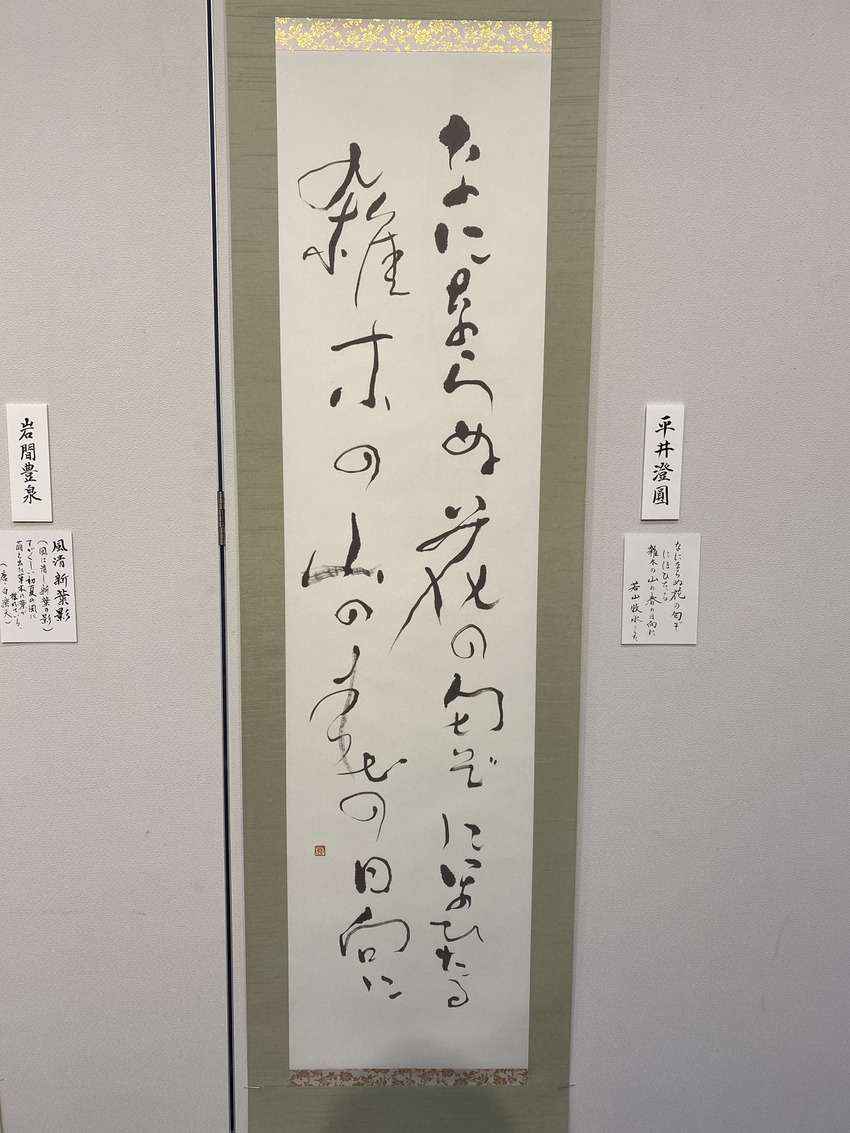 なにならぬ花の匂ぞにほひたる
雑木の山の春の日向に
平井澄圓
なにならぬ花の匂ぞ
にほひたる
雑木の山の春の日向に
若山牧水のうた
岩間豊泉
風清新葉影
(風は清し新葉の影)
すがくしい初夏の風に
萌え出た草木の葉が
揺れている
(唐・白樂天)